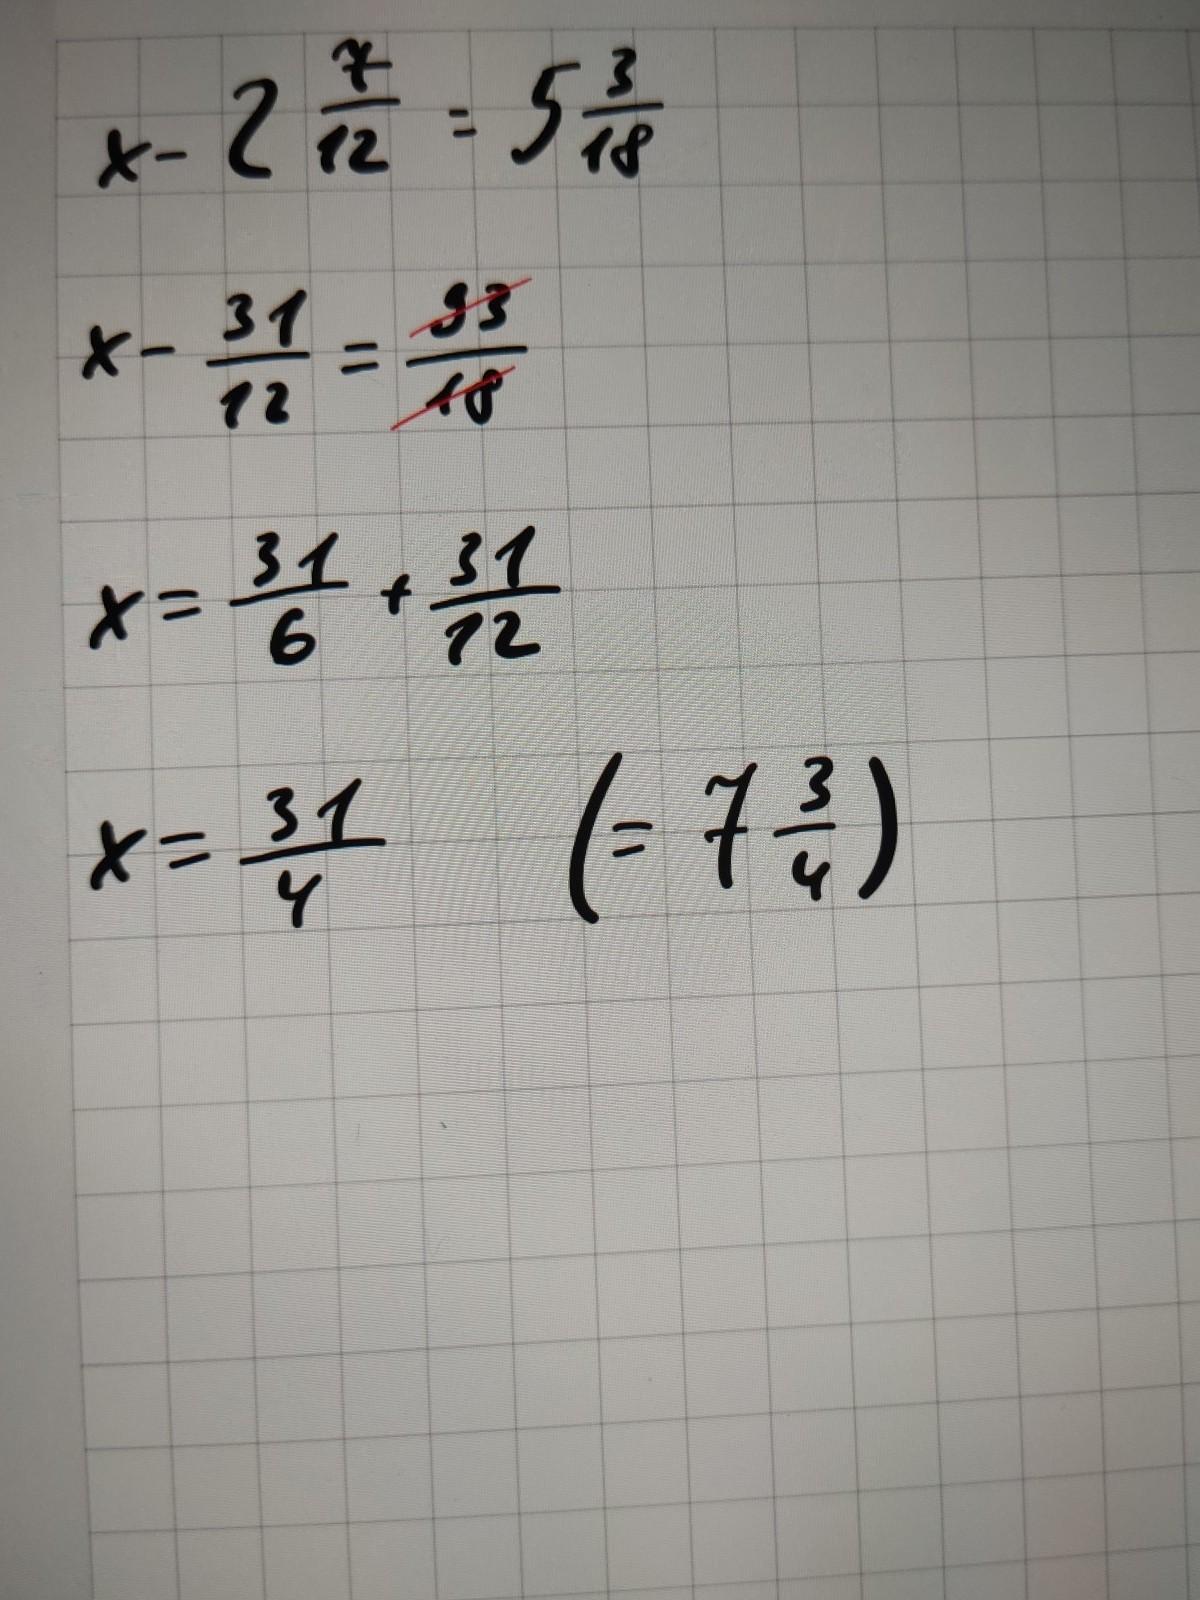 x - 2 7/12 = 5 3/18
x - 31/12 = 93/18
x = 31/6 + 31/12
x = 31/4 (= 7 3/4)